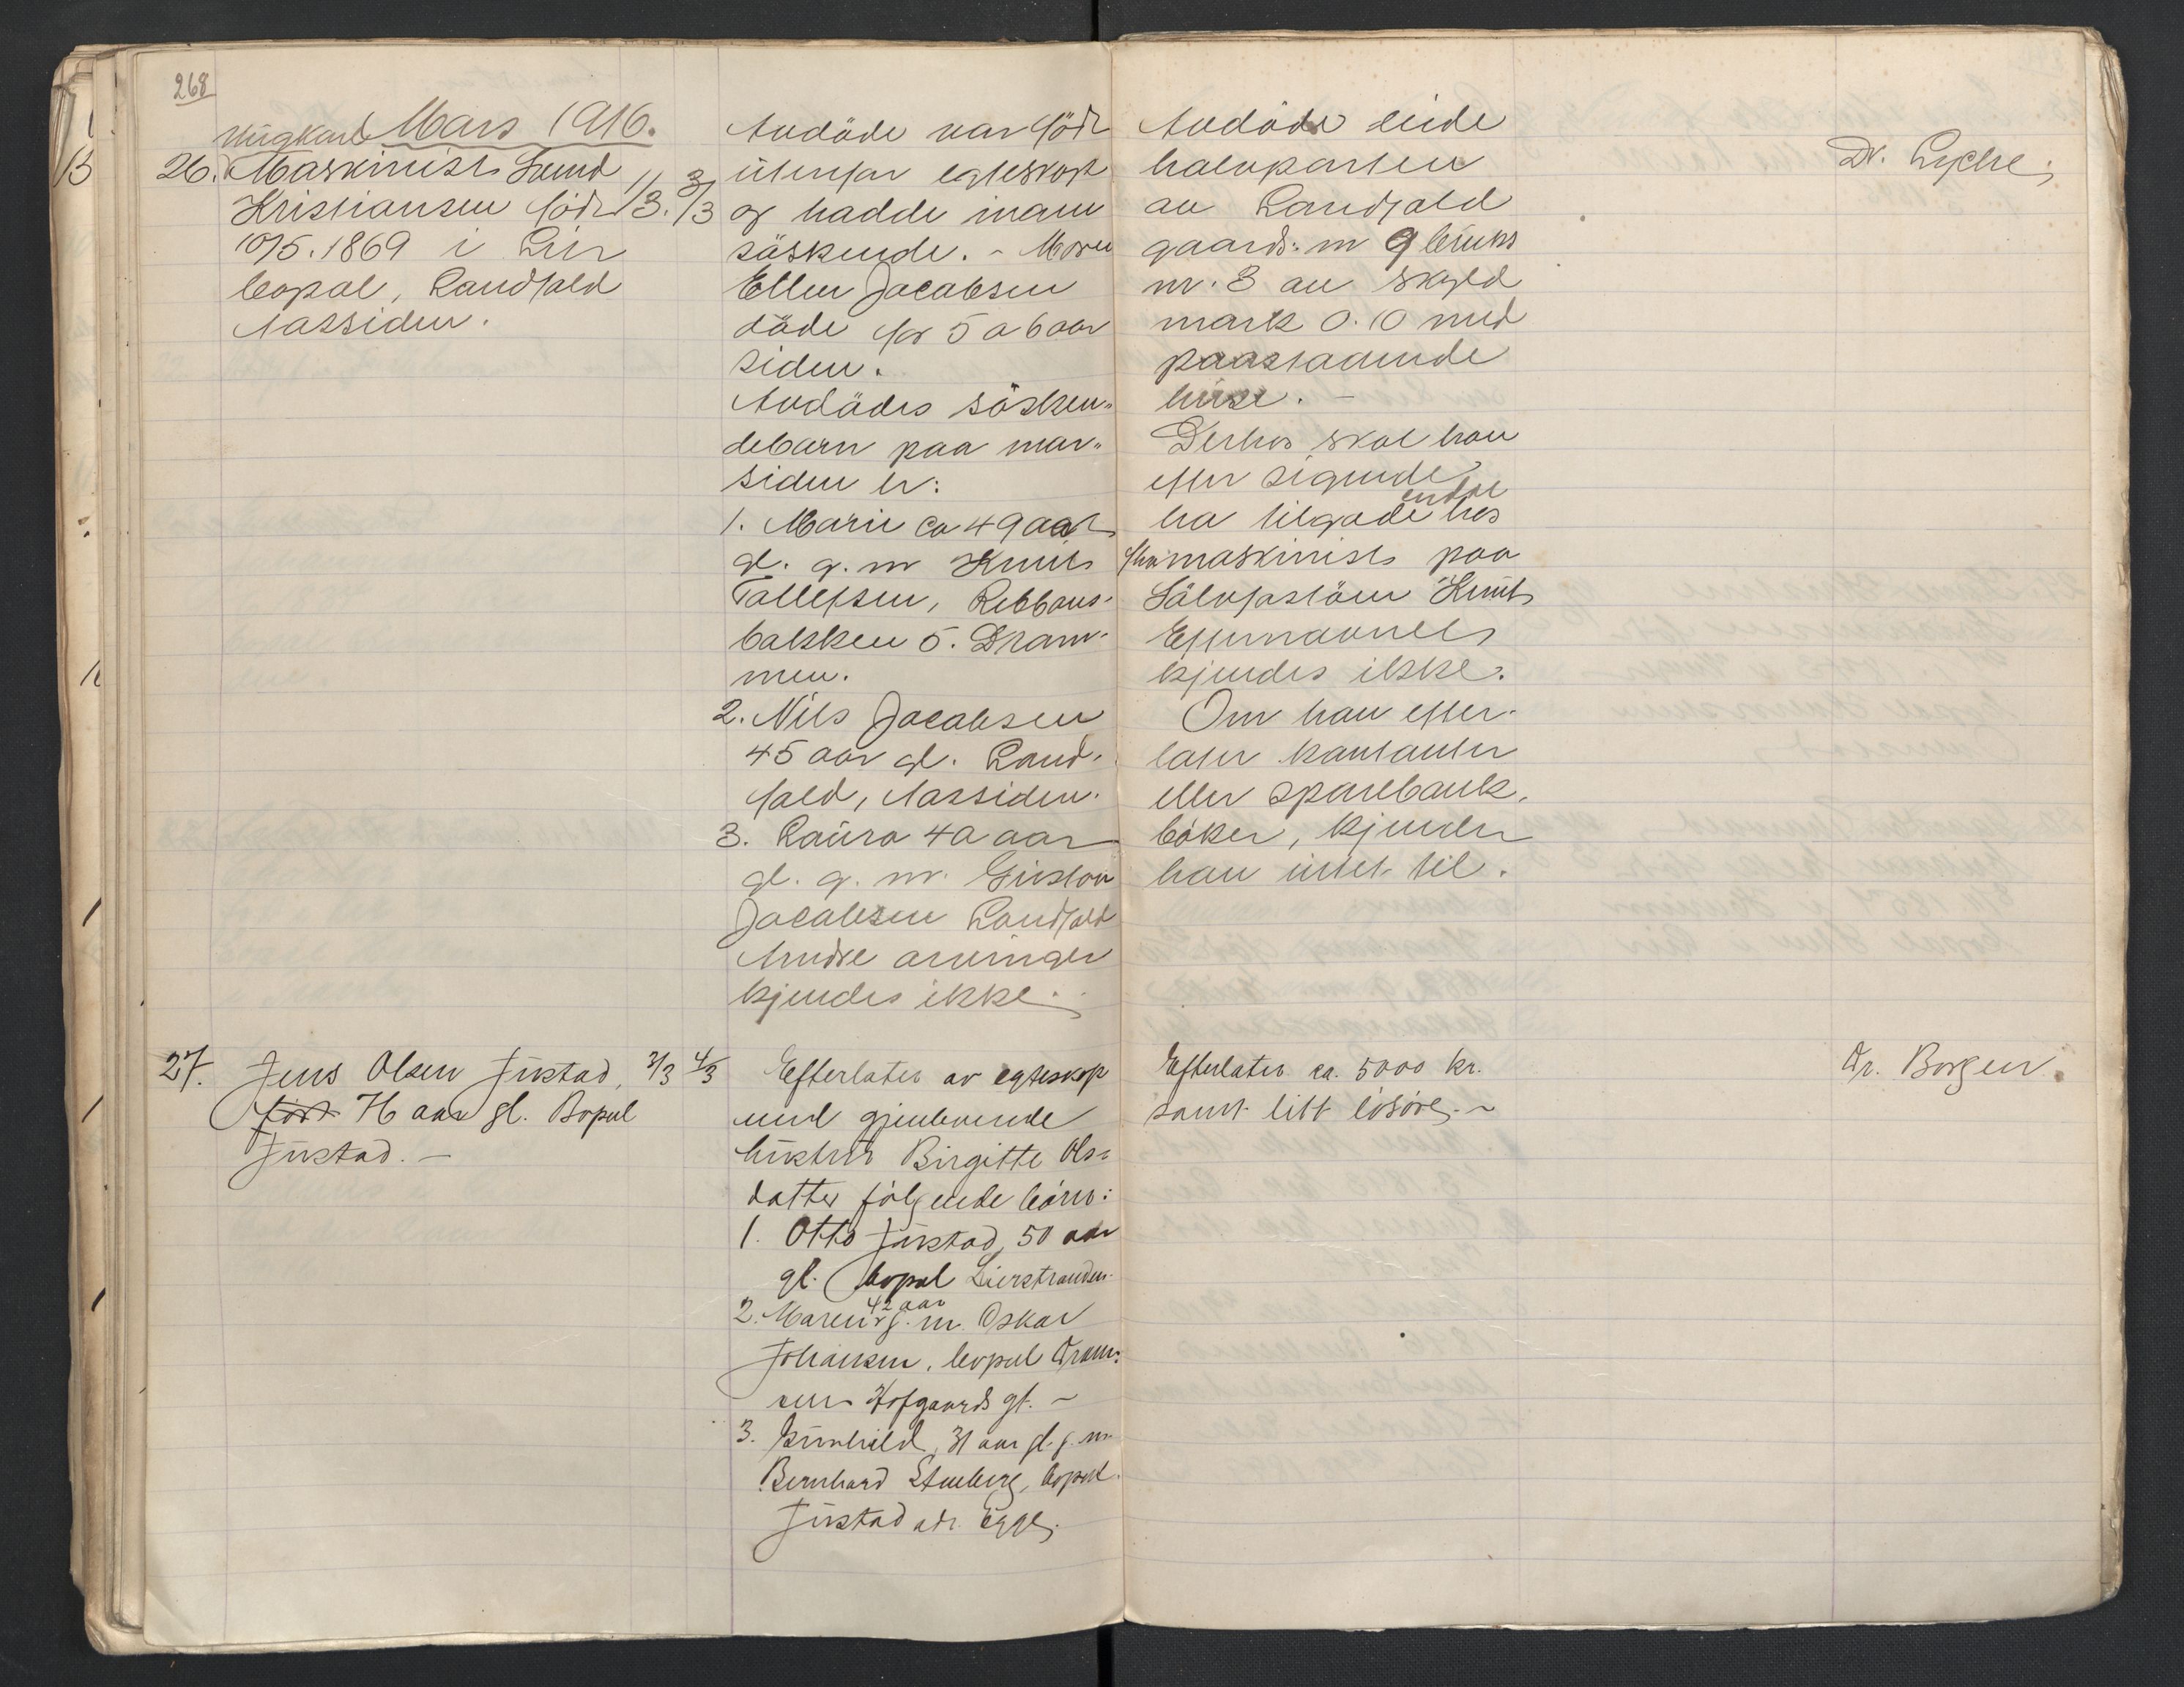 268
Mars 1916.
ungkarl
26. Maskinist Lund
Kristiansen född
10/5. 1869 i Lier
bopæl, Landfald
Aassiden.
1/3. 3/3
Avdöde var född
utenfor egteskap
og hadde ingen
söskende. - Moren
Ellen Jacobsen
döde for 5 a 6 aar
siden.
Avdödes sösken-
debarn paa mor-
siden er:
1. Marie ca 49 aar
gl. g. m Knut
Tollefsen,
bakken 5. Dram-
men.
2. Nils Jacobsen
45 aar gl. Land-
fald, Aassiden.
3. Laura 40 aar
gl. g. m. Gustav
Jacobsen Landfald
Andre arvinger
kjendes ikke.
Avdöde eiede
halvparten
av Landfald
gaards: nr 9 bruks
nr. 3 av skyld
mark 0.10 med
paastaaende
huse. -
Derhos skal han
efter sigende
ha tilgode endel hos
maskinist paa
Knut
Efternavnet
kjendes ikke.
Om han efter-
later kontanter
eller sparebank-
böker, kjender
han intet til.
Dr. Lyche
27. Jens Olsen Justad,
76 aar gl. Bopæl
Justad. -
3/3 4/3
Efterlater av egteskap
med gjenlevende
hustru Birgitte Ols-
datter följende börn:
1. Otto Justad, 50 aar
gl. bopæl Lierstranden.
2. Maren 42 aar g. m. Oskar
Johansen, bopæl Dram-
men Hofgaards gt. -
3. Gunhild, 31 aar gl. g. m.
Bernhard Stenberg, bopæl
Justad adr. Egge.
Efterlater ca. 5000 kr.
samt litt lösöre. -
Dr. Borgen.